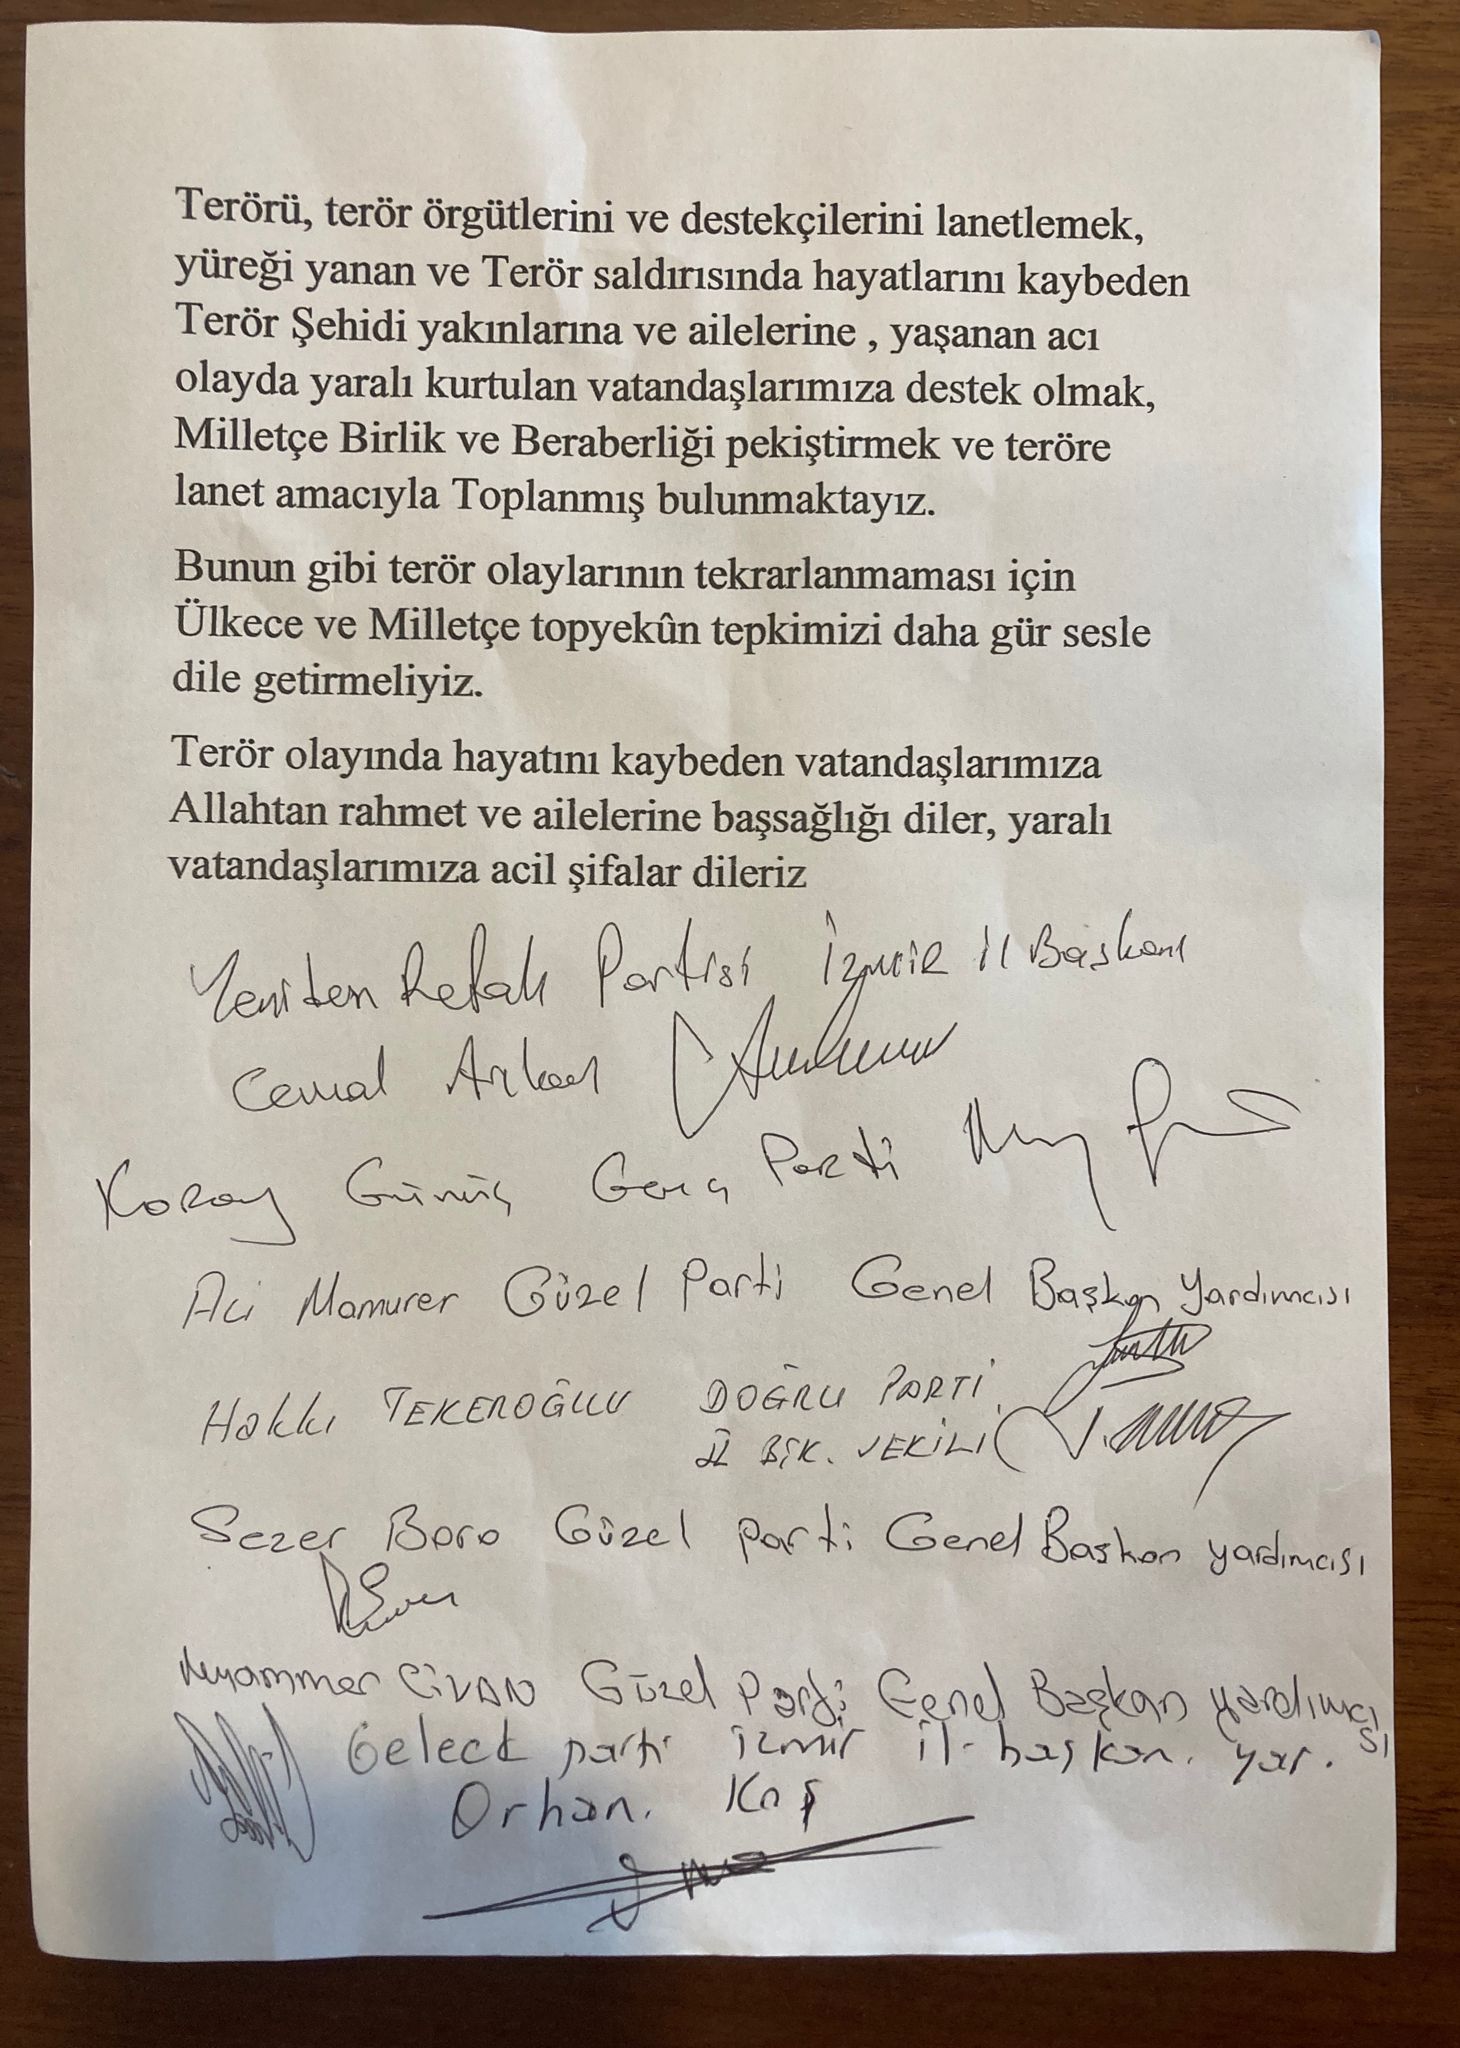 Terörü, terör örgütlerini ve destekçilerini lanetlemek,
yüreği yanan ve Terör saldırısında hayatlarını kaybeden
Terör Şehidi yakınlarına ve ailelerine , yaşanan acı
olayda yaralı kurtulan vatandaşlarımıza destek olmak,
Milletçe Birlik ve Beraberliği pekiştirmek ve teröre
lanet amacıyla Toplanmış bulunmaktayız.
Bunun gibi terör olaylarının tekrarlanmaması için
Ülkece ve Milletçe topyekûn tepkimizi daha gür sesle
dile getirmeliyiz.
Terör olayında hayatını kaybeden vatandaşlarımıza
Allahtan rahmet ve ailelerine başsağlığı diler, yaralı
vatandaşlarımıza acil şifalar dileriz
Yeniden Refah Partisi İzmir il Başkanı
Cemal Arıkan
Koray Gümüş Genç Parti
Mamurer Güzel Parti Genel Başkan Yardımcısı
Hakkı TEKEROĞLU DOĞRU PARTİ
İL BŞK. VEKİLİ
Sezer Boro Güzel parti Genel Başkan yardımcısı
Muammer CİVAN Güzel Parti Genel Başkan yardımcısı
Gelecek parti izmir il- başkan. yar.
Orhan. Koş